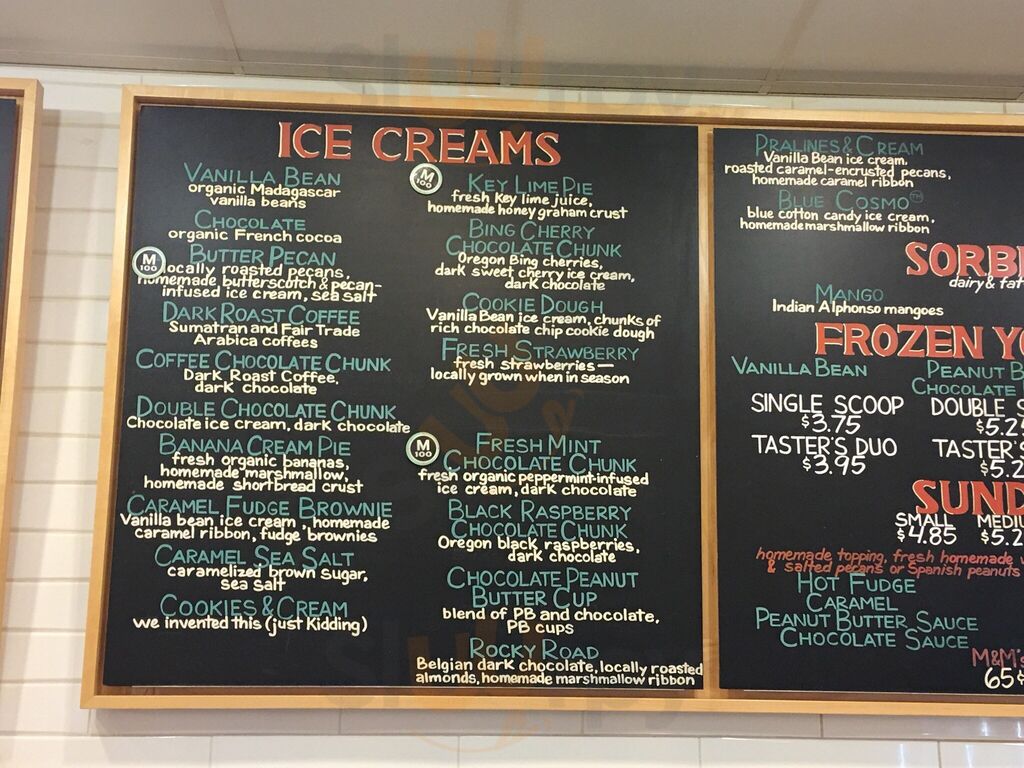 ICE CREAMS
VANILLA BEAN
organic Madagascar
vanilla beans
CHOCOLATE
organic French cocoa
M
100
BUTTER PECAN
locally roasted pecans,
homemade butterscotch & pecan-
infused ice cream, sea salt
DARK ROAST COFFEE
Sumatran and Fair Trade
Arabica coffees
COFFEE CHOCOLATE CHUNK
Dark Roast Coffee,
dark chocolate
DOUBLE CHOCOLATE CHUNK
Chocolate ice cream, dark chocolate
BANANA CREAM PIE
fresh organic bananas,
homemade marshmallow,
homemade shortbread crust
CARAMEL FUDGE BROWNIE
Vanilla bean ice cream, homemade
caramel ribbon, fudge brownies
CARAMEL SEA SALT
caramelized brown sugar,
sea salt
COOKIES & CREAM
we invented this (just kidding)
M
100
KEY LIME PIE
fresh Key lime juice,
homemade honey graham crust
BING CHERRY
CHOCOLATE CHUNK
Oregon Bing cherries,
dark sweet cherry ice cream,
dark chocolate
COOKIE DOUGH
Vanilla Bean ice cream, chunks of
rich chocolate chip cookie dough
FRESH STRAWBERRY
fresh strawberries—
locally grown when in season
M
100
FRESH MINT
CHOCOLATE CHUNK
fresh organic peppermint-infused
ice cream, dark chocolate
BLACK RASPBERRY
CHOCOLATE CHUNK
Oregon black raspberries,
dark chocolate
CHOCOLATE PEANUT
BUTTER CUP
blend of PB and chocolate,
PB cups
ROCKY ROAD
Belgian dark chocolate, locally roasted
almonds, homemade marshmallow ribbon
PRALINES & CREAM
Vanilla Bean ice cream,
roasted caramel-encrusted pecans,
homemade caramel ribbon
BLUE COSMO™
blue cotton candy ice cream,
homemade marshmallow ribbon
SORB
dairy & fat
MANGO
Indian Alphonso mangoes
FROZEN YO
VANILLA BEAN
PEANUT B
CHOCOLATE
SINGLE SCOOP
$3.75
DOUBLE S
$5.2
TASTER'S DUO
$3.95
TASTER'S
$5.2
SUND
SMALL
$4.85
MEDIU
$5.2
homemade topping, fresh homemade
& salted pecans or Spanish peanuts
HOT FUDGE
CARAMEL
PEANUT BUTTER SAUCE
CHOCOLATE SAUCE
M&M's
65¢